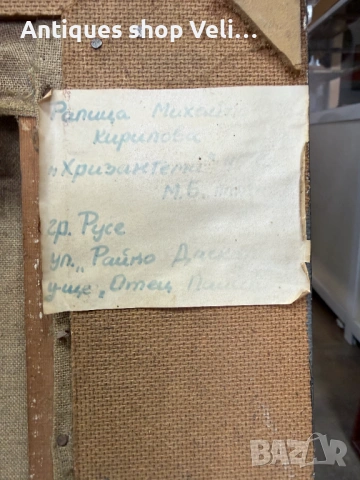 Antiques shop Veli...
Рапица Михай
Кирилова
„Хризантеми"
М.Б.
гр. Русе
ул. „Райно
у-ще „Отец Паисий
BAZAR